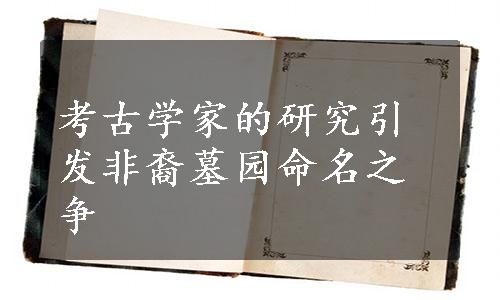 考古学家的研究引
发非裔墓园命名之
争